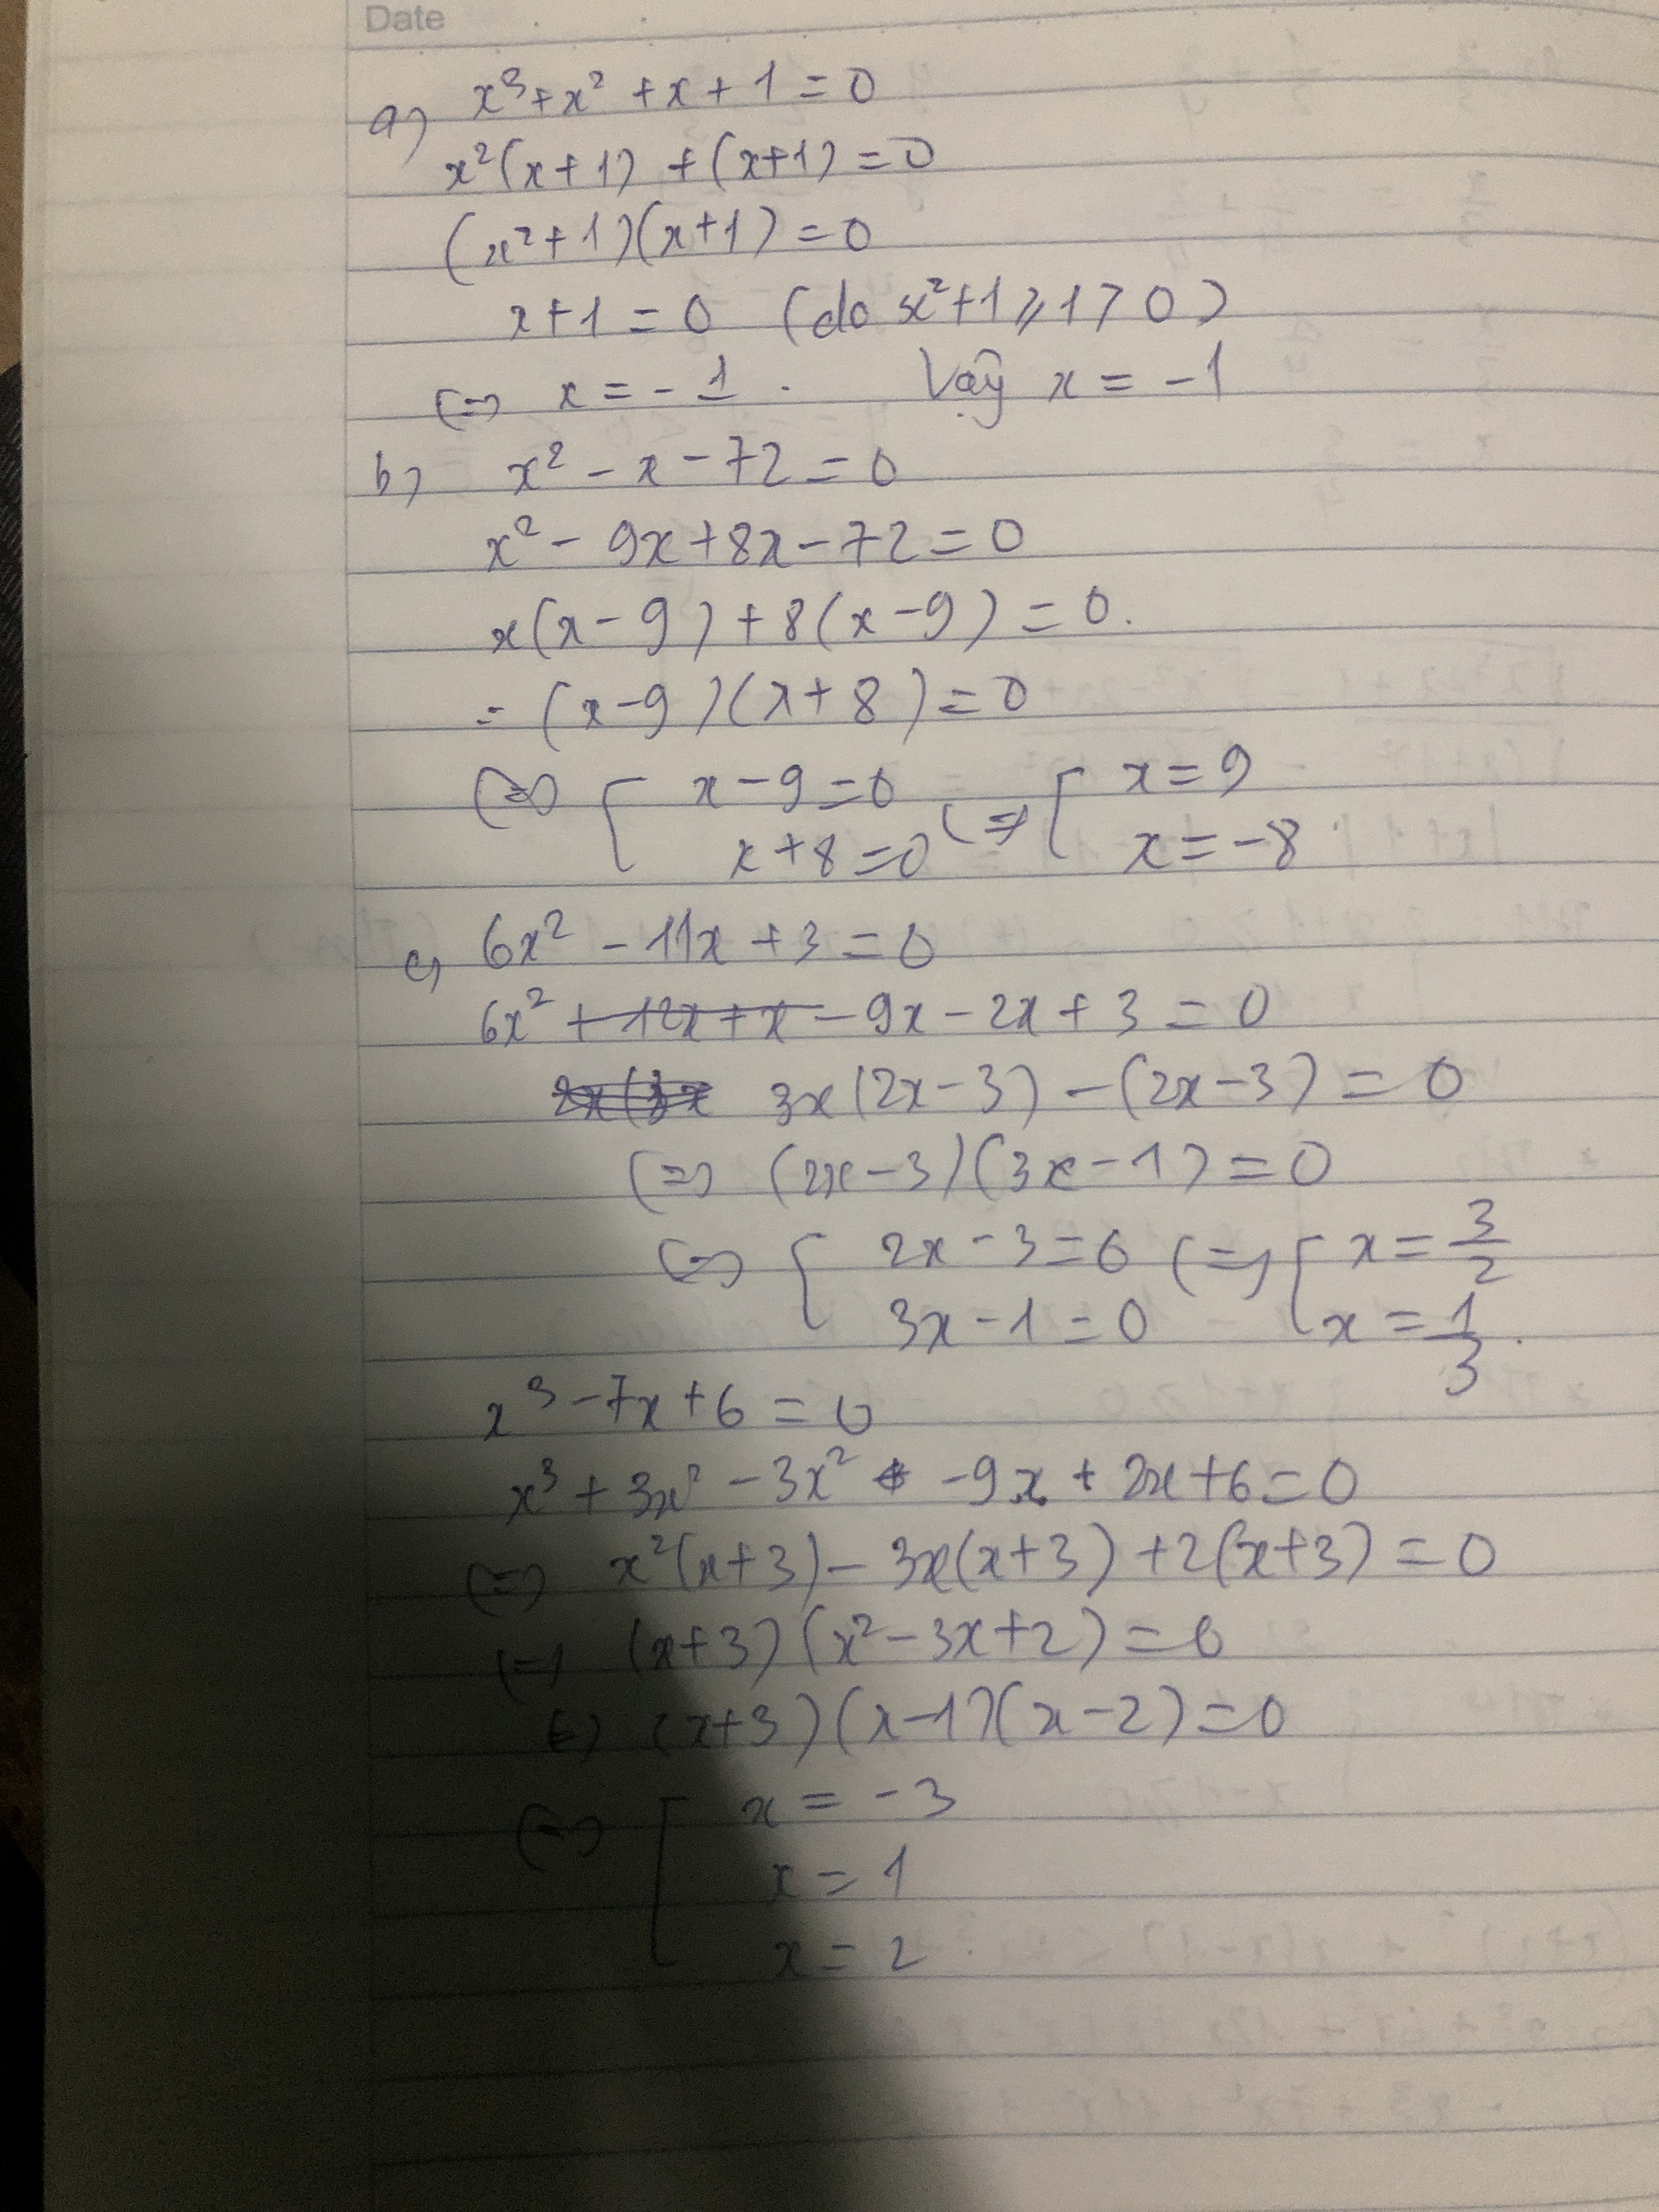 Date
a) x³ + x² + x + 1 = 0
x²(x+1) + (x+1) = 0
(x²+1)(x+1) = 0
x+1 = 0 (do x²+1 ⩾ 1 > 0)
⇔ x = -1. Vậy x = -1
b) x² - x - 72 = 0
x² - 9x + 8x - 72 = 0
x(x-9) + 8(x-9) = 0.
= (x-9)(x+8) = 0
⇔ [ x-9=0 ⇔ [ x=9
x+8=0 x=-8
c) 6x² - 11x + 3 = 0
6x² + 12x + x - 9x - 2x + 3 = 0
2x(3x 3x(2x-3) - (2x-3) = 0
⇔ (2x-3)(3x-1) = 0
⇔ [ 2x-3=0 ⇔ [ x = 3/2
3x-1=0 x = 1/3.
x³ - 7x + 6 = 0
x³ + 3x² - 3x² - 9x + 2x + 6 = 0
⇔ x²(x+3) - 3x(x+3) + 2(x+3) = 0
⇔ (x+3)(x²-3x+2) = 0
⇔ (x+3)(x-1)(x-2) = 0
⇔ [ x = -3
x = 1
x = 2